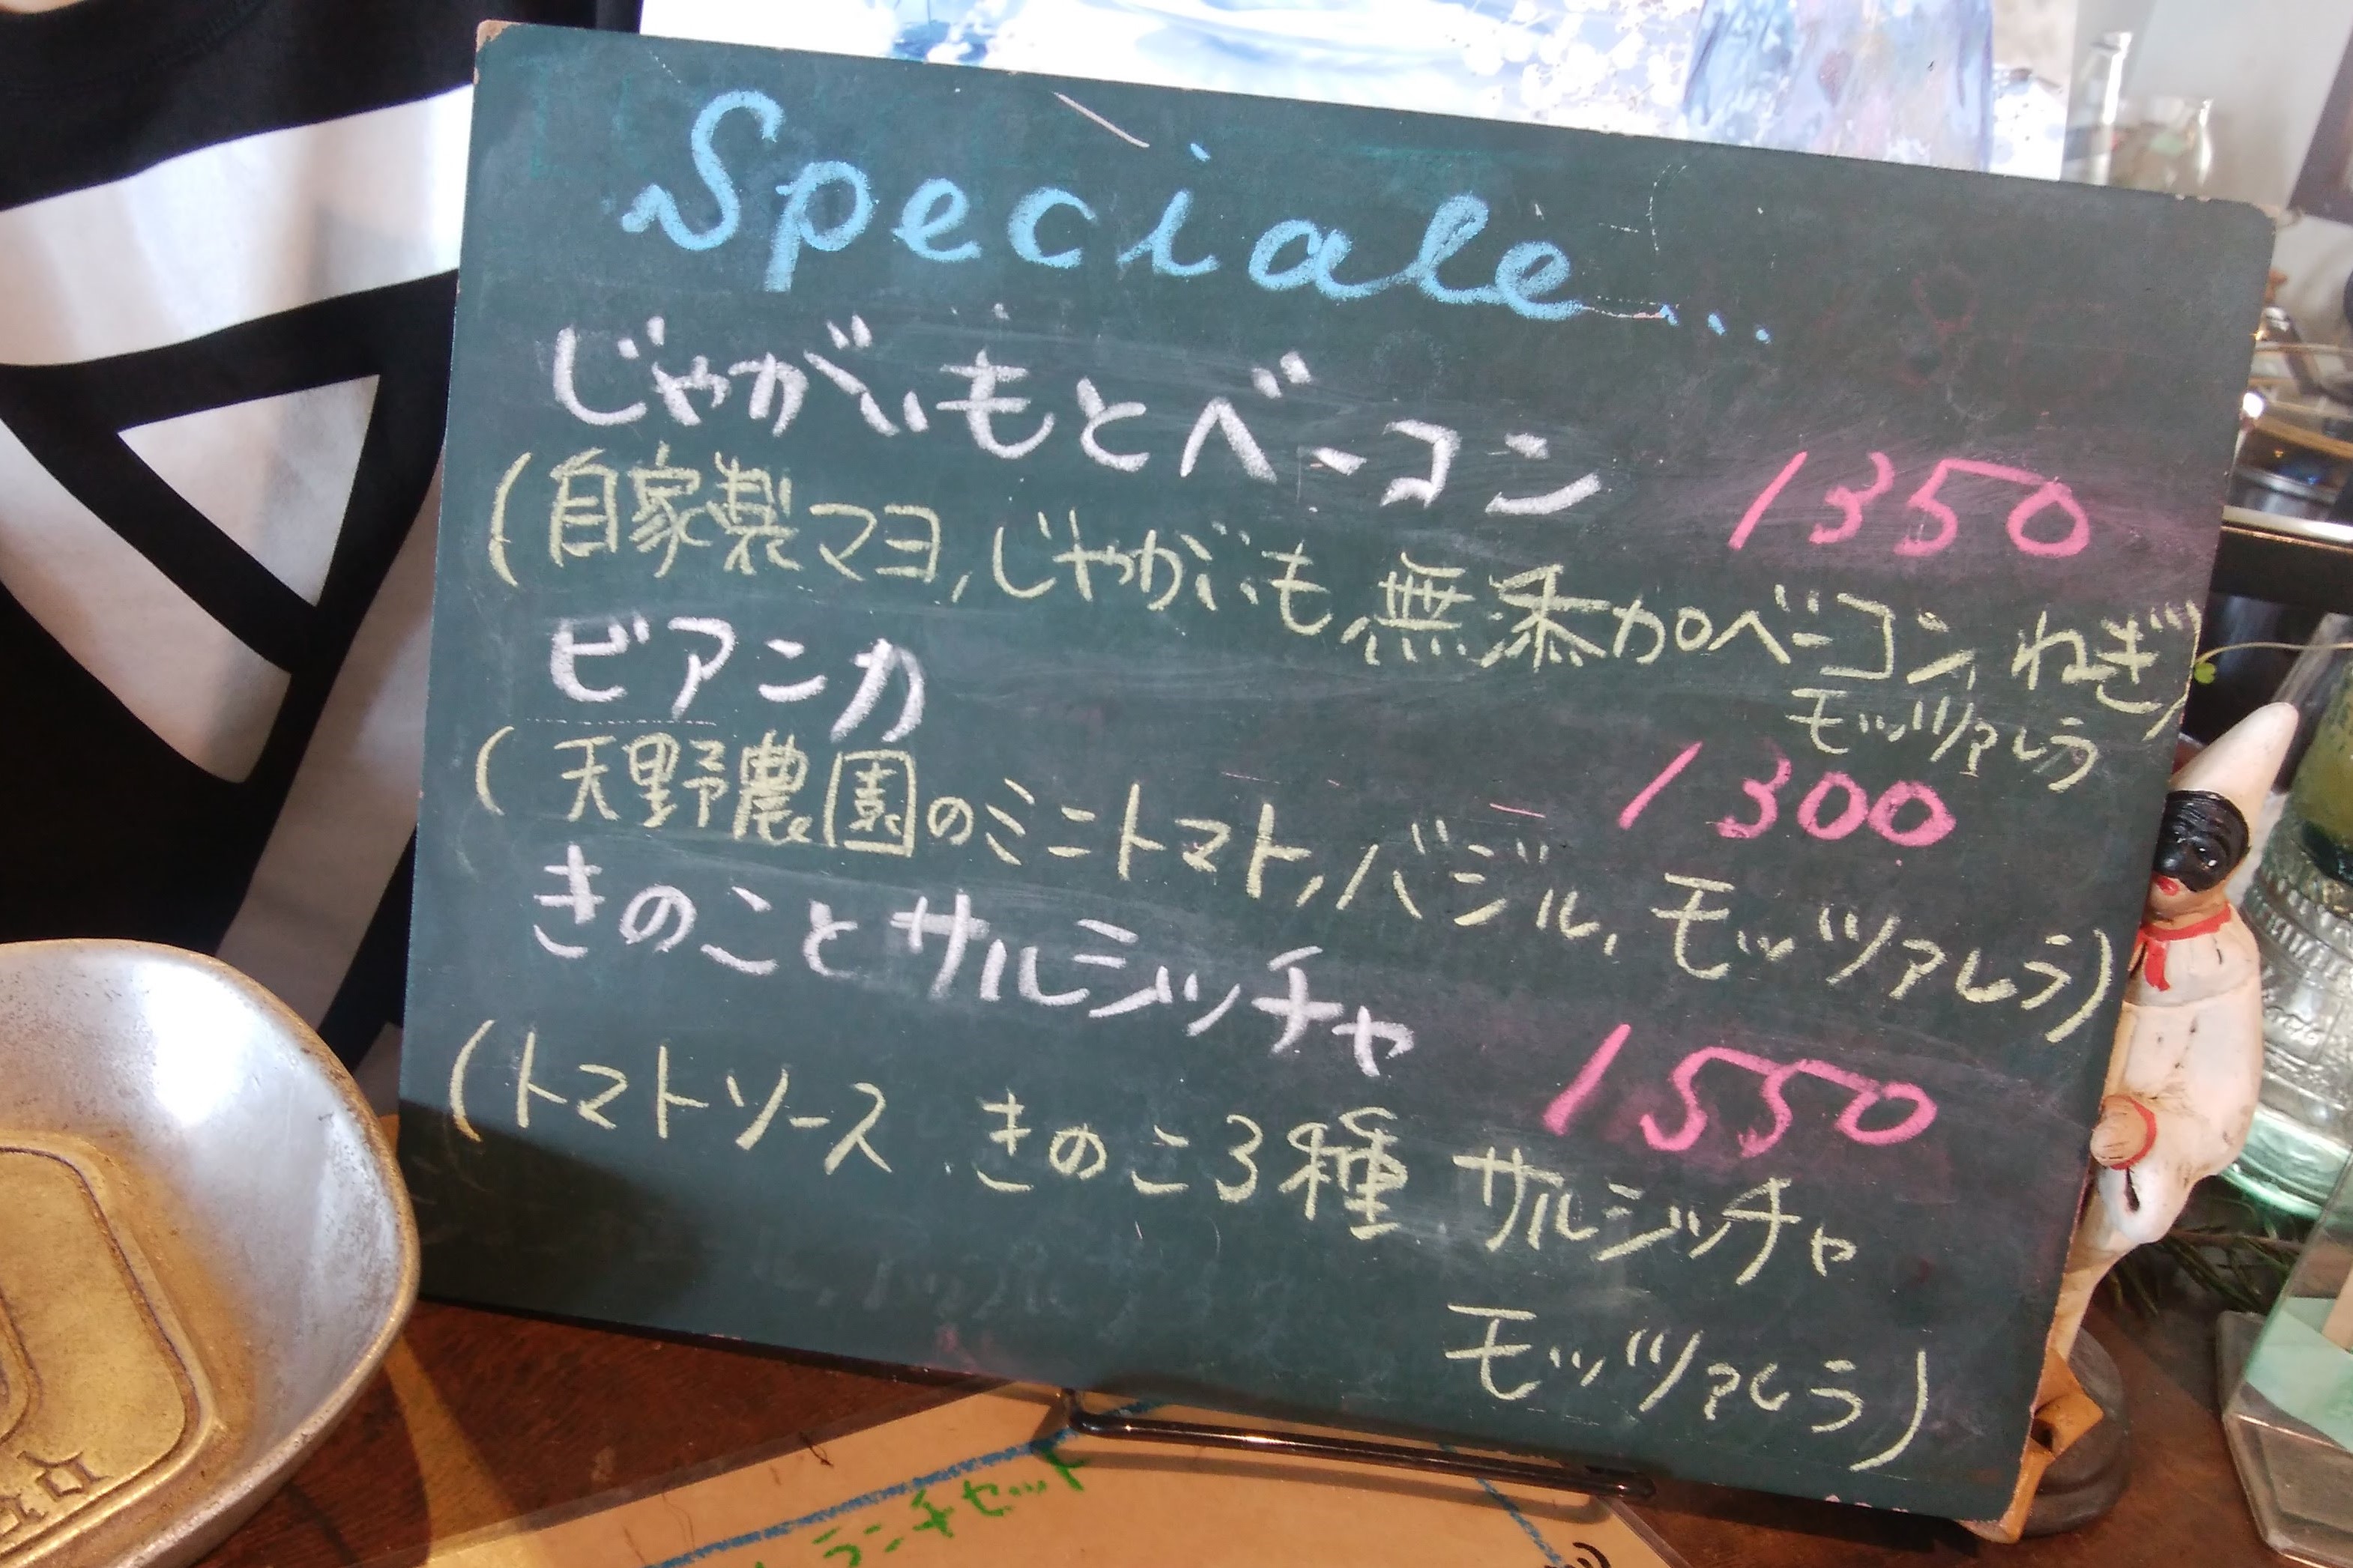 Speciale...
じゃがいもとベーコン 1350
(自家製マヨ,じゃがいも,無添加ベーコン,ねぎ)
モッツァレラ
ビアンカ 1300
(天野農園のミニトマト,バジル,モッツァレラ)
きのことサルシッチャ 1550
(トマトソース,きのこ3種,サルシッチャ
モッツァレラ)
ランチセット